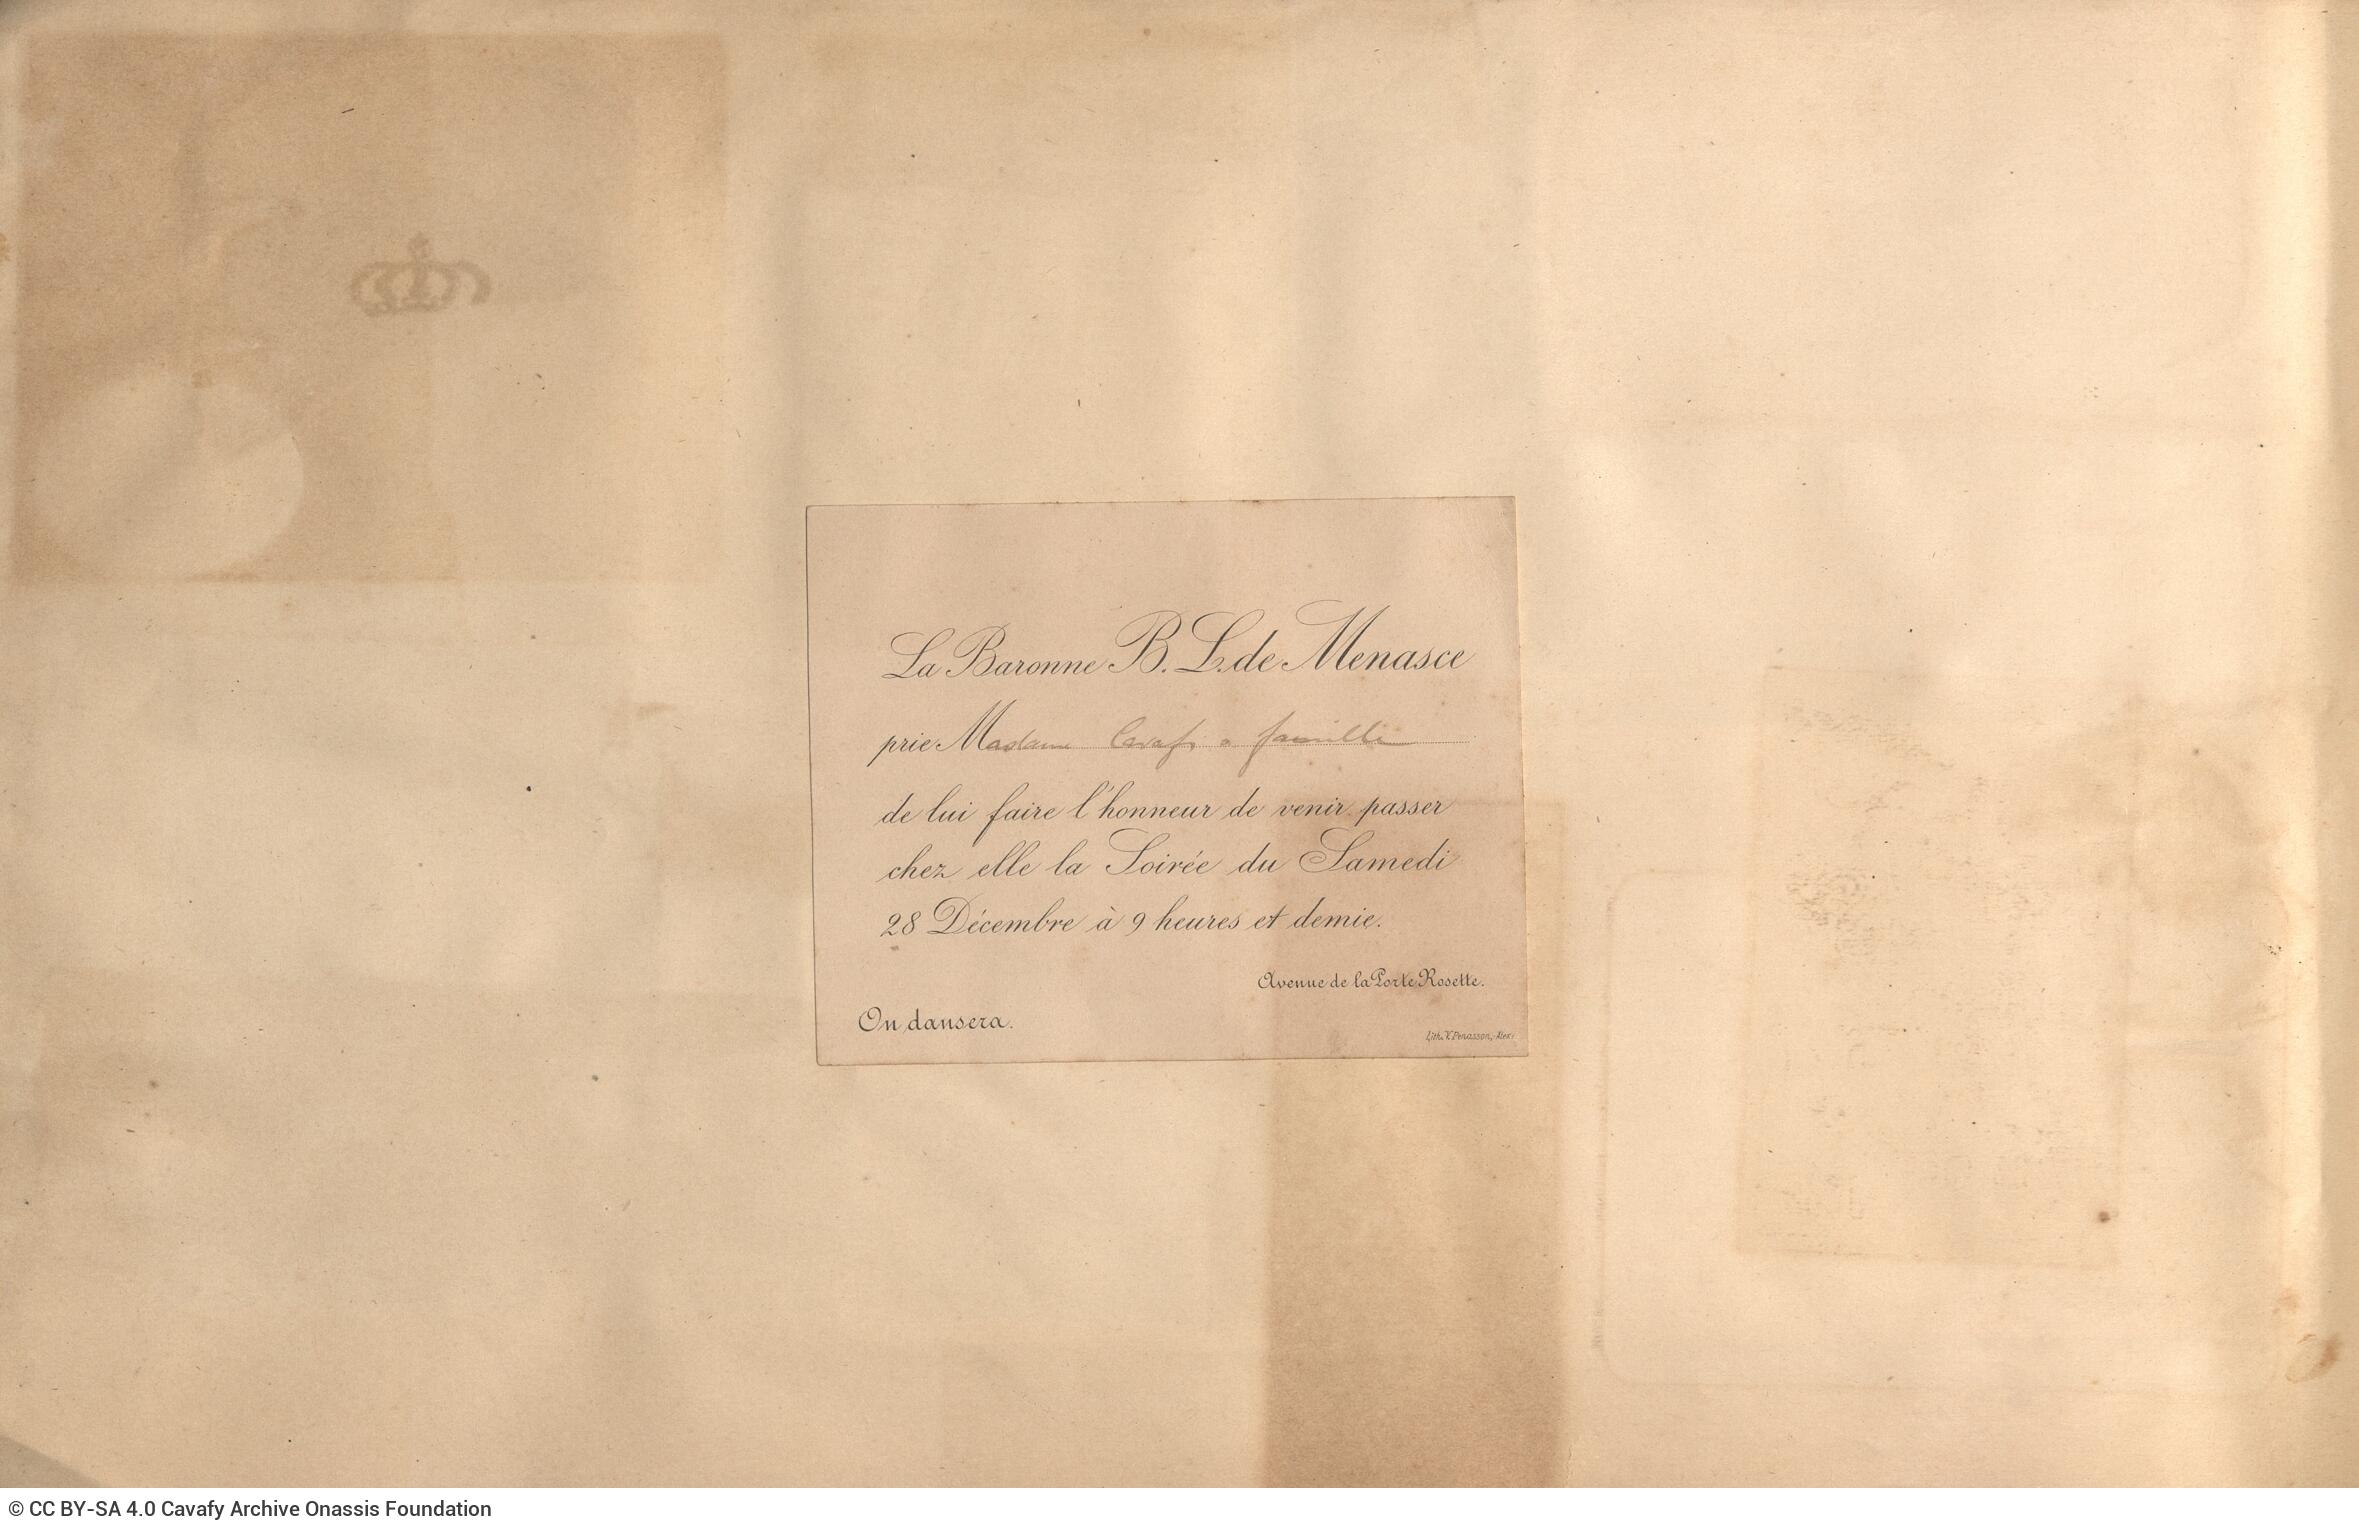 La Baronne B. L. de Menasce
prie Madame Cavafi & famille
de lui faire l'honneur de venir passer
chez elle la Soirée du Samedi
28 Décembre à 9 heures et demie.
Avenue de la Porte Rosette.
On dansera.
Lith. V. Penasson, Alex.
© CC BY-SA 4.0 Cavafy Archive Onassis Foundation